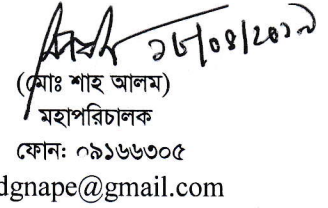 ১৮/০৪/২০১৯
(মোঃ শাহ আলম)
মহাপরিচালক
ফোন: ০৯১৬৬৩০৫
dgnape@gmail.com